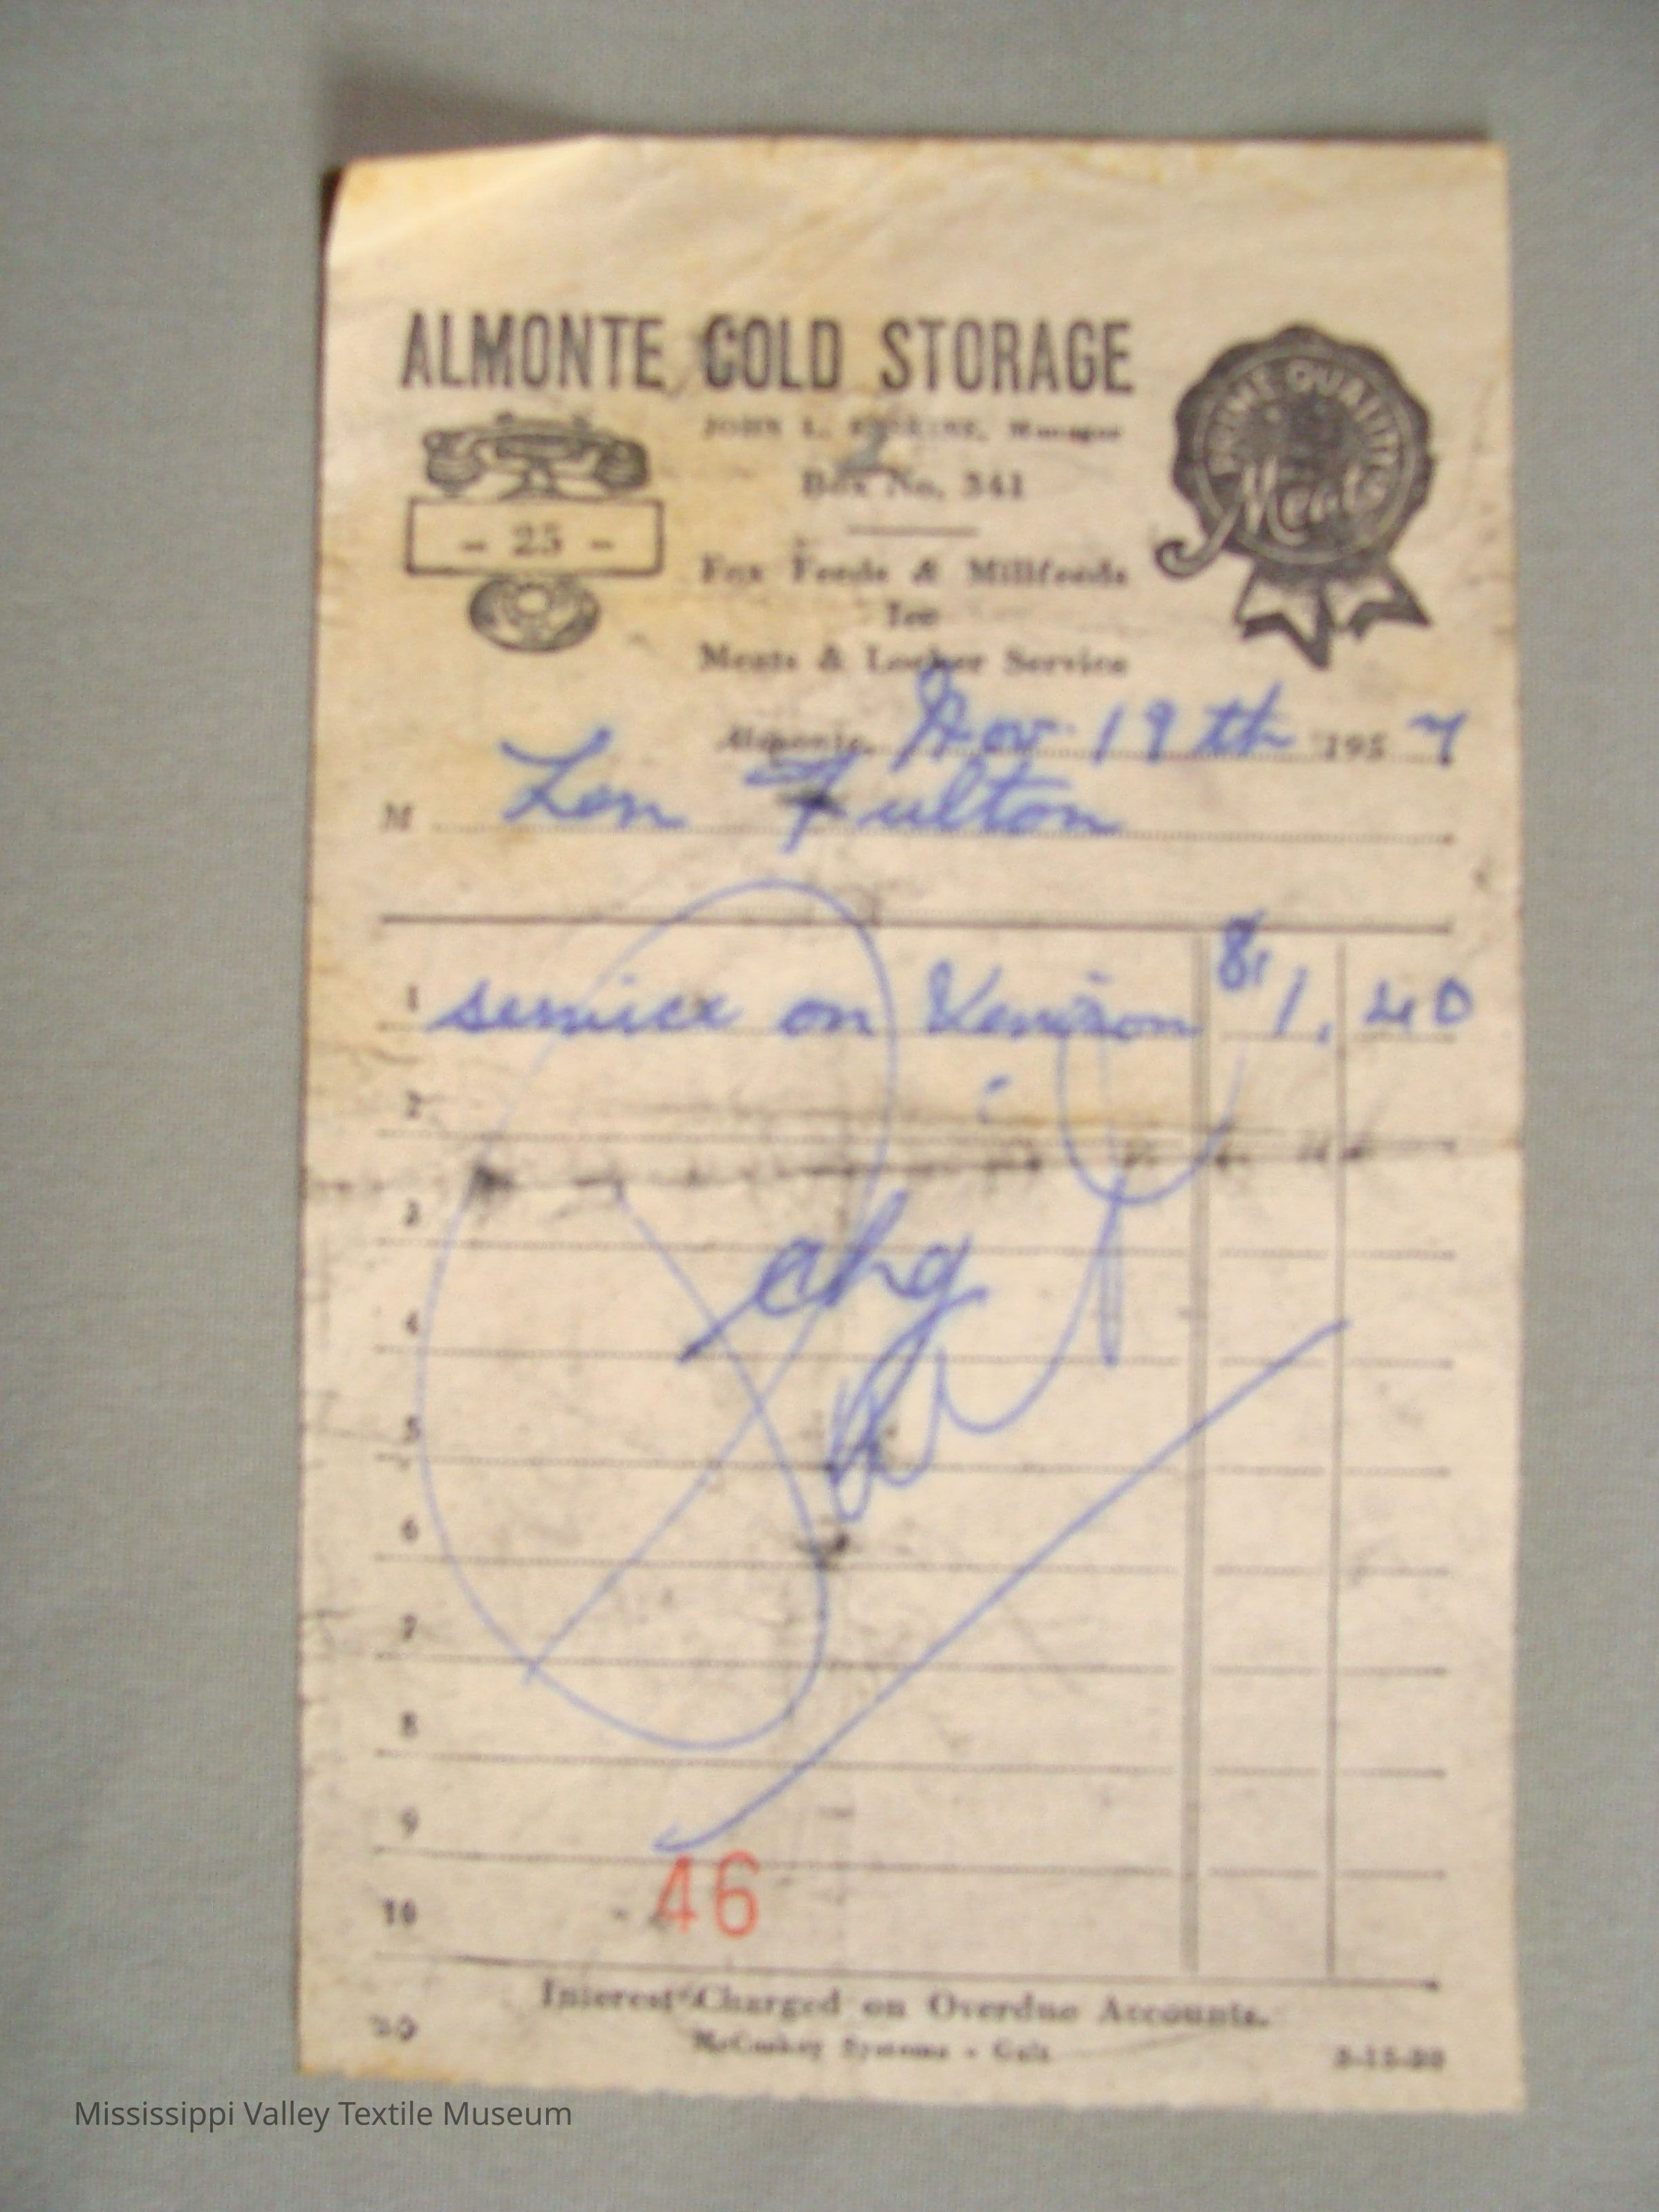 ALMONTE COLD STORAGE
JOHN L. Manager
Box No. 341
- 25 -
PRIME QUALITY
Meats
Fox Feeds & Millfeeds
Ice
Meats & Locker Service
Almonte, Nov. 19th 1957
M Len Fulton
1 service on Venison 1.40
2
chg
3
4
5
6
7
8
9
46
10
Interest Charged on Overdue Accounts.
McCaskey Systems - Galt
Mississippi Valley Textile Museum